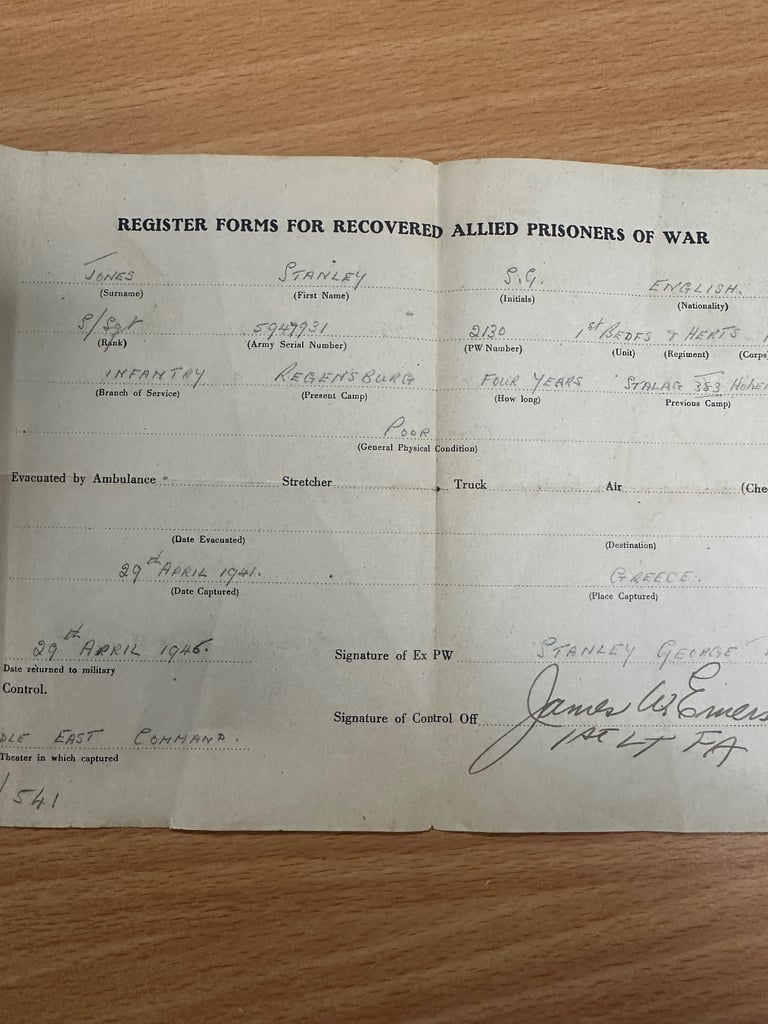 REGISTER FORMS FOR RECOVERED ALLIED PRISONERS OF WAR
JONES STANLEY S.G. ENGLISH.
(Surname) (First Name) (Initials) (Nationality)
S/Sgt 5947931 2130 1st BEDFS & HERTS
(Rank) (Army Serial Number) (PW Number) (Unit) (Regiment) (Corps
INFANTRY REGENSBURG FOUR YEARS STALAG 383 HOHEN
(Branch of Service) (Present Camp) (How long) Previous Camp)
POOR
(General Physical Condition)
Evacuated by Ambulance Stretcher Truck Air (Che
(Date Evacuated) (Destination)
29th APRIL 1941. GREECE.
(Date Captured) (Place Captured)
29th APRIL 1945. Signature of Ex PW STANLEY GEORGE
Date returned to military
Control. Signature of Control Off. James W. Emers
1st LT FA
DLE EAST COMMAND.
Theater in which captured
/541